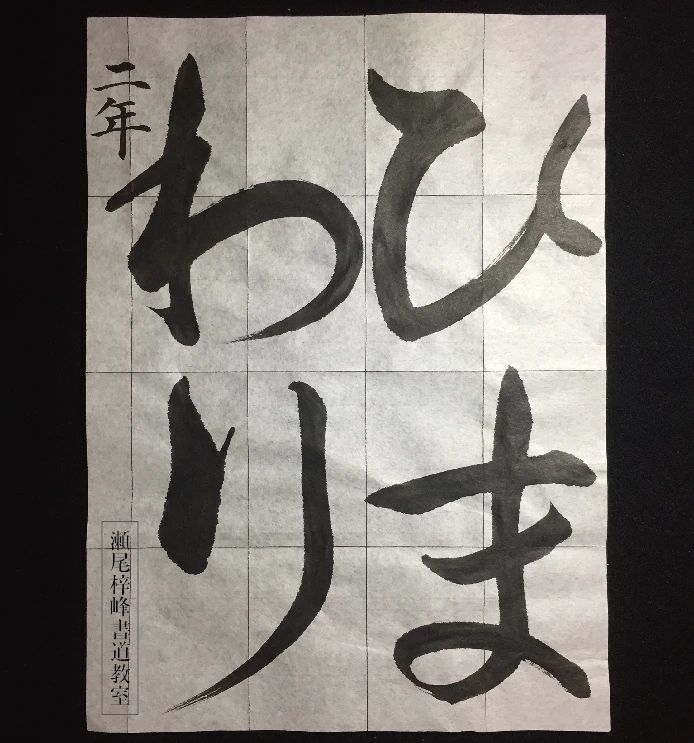 ひま
わり
二年
瀬尾梓峰書道教室